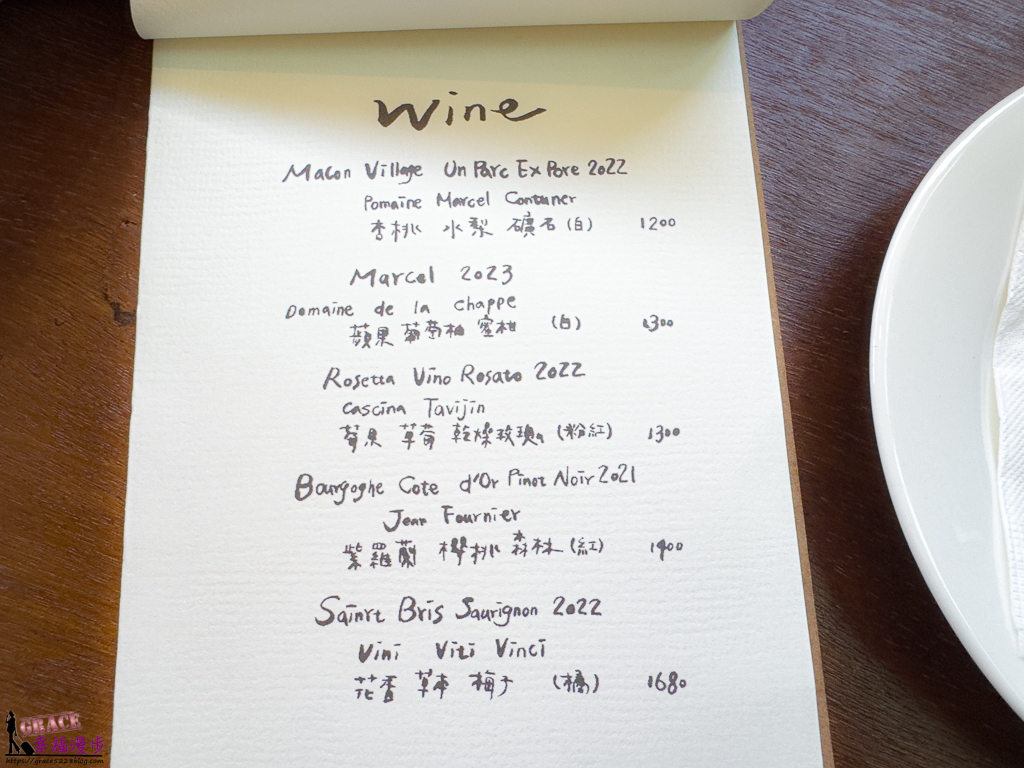 Wine
Macon Village Un Parc Ex Pore 2022
Pomaine Marcel Contuner
杏桃 水梨 礦石 (白) 1200
Marcel 2023
Domaine de la chappe
蘋果 葡萄柚 蜜柑 (白) 1300
Rosetta Vino Rosato 2022
Cascina Tavijin
莓果 草莓 乾燥玫瑰 (粉紅) 1300
Bourgoghe Cote d'Or Pinot Noir 2021
Jean Fournier
紫羅蘭 櫻桃 森林 (紅) 1400
Sainrt Bris Saurignon 2022
Vini Viti Vinci
花香 草本 梅子 (橘) 1680
GRACE
https://grace5228blog.com